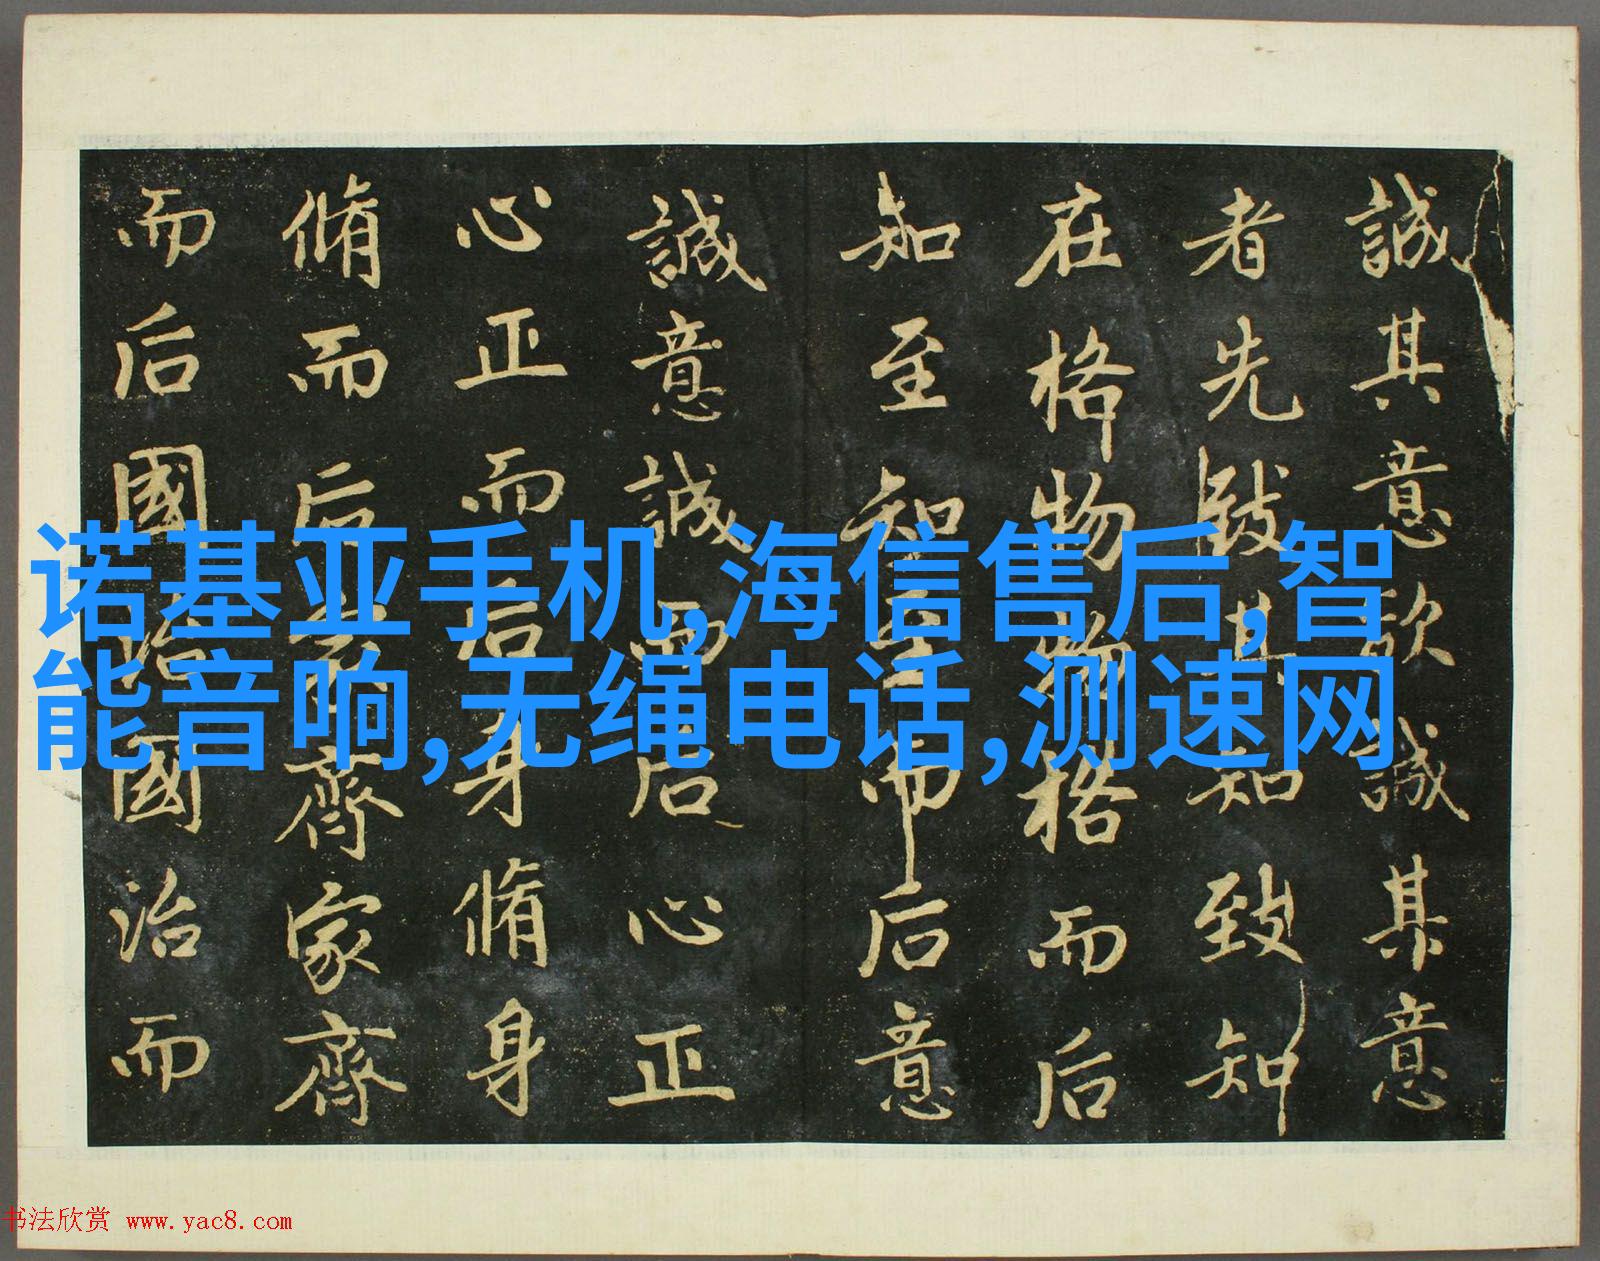 誠其意欲誠其意
者先致其知致知
在格物物格而后
知至知至而后意
誠意誠而后心正
心正而后身脩身
脩而后家齊家齊
而后國治國治而
诺基亚手机,海信售后,智
能音响,无绳电话,测速网
书法欣赏 www.yac8.com